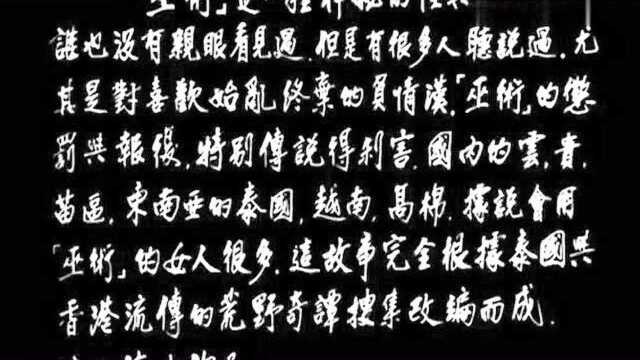 誰也没有親眼看見過．但是有很多人聽説過．尤
其是對喜歡始亂終棄的負情漢．「巫術」的懲
罰與報復．特别傳説得利害．國内的雲，貴，
苗區．東南亜的泰國，越南，高棉．據説會用
「巫術」的女人很多．這故事完全根據泰國與
香港流傳的荒野奇譚搜集改編而成．